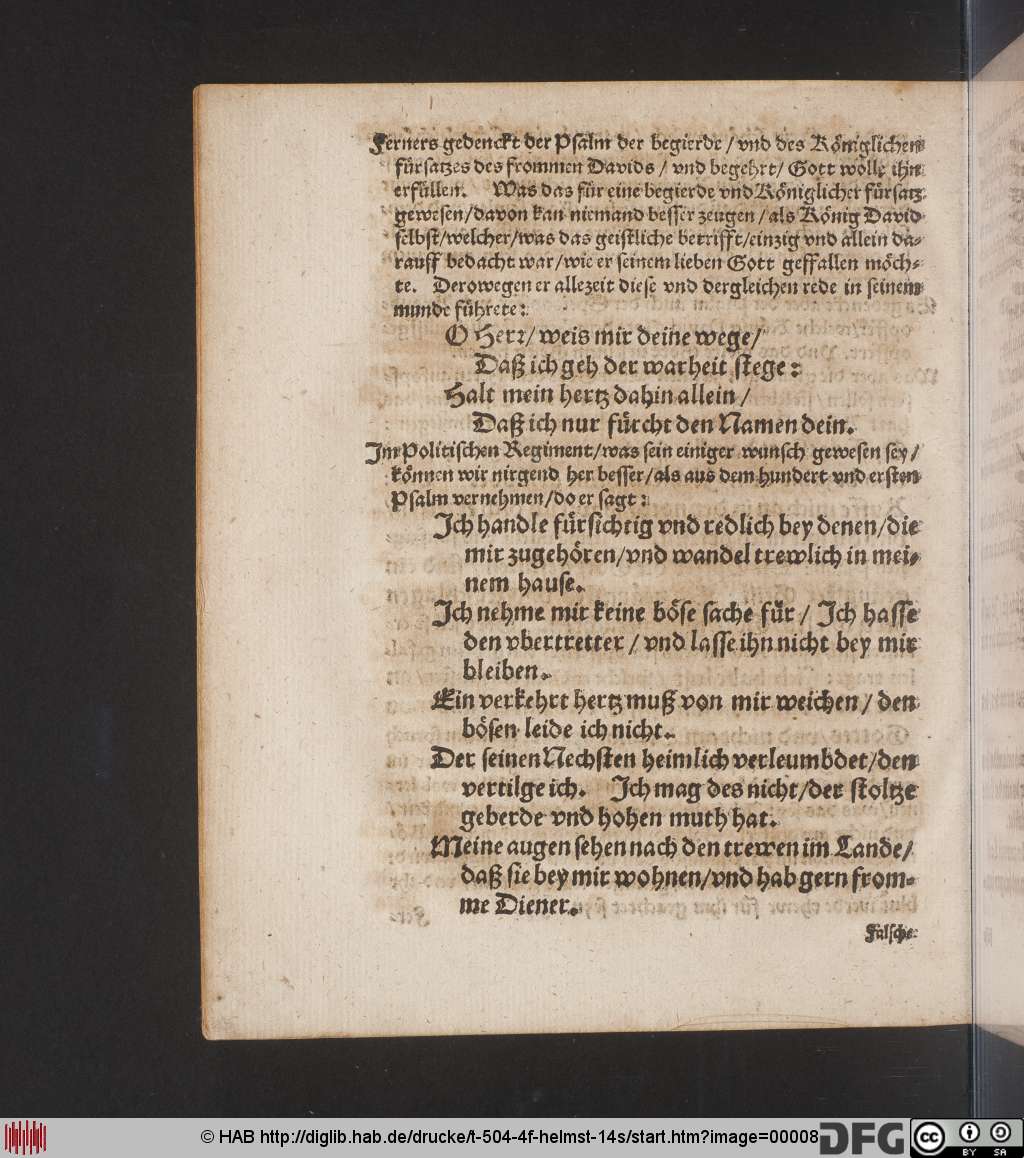 Ferners gedenckt der Psalm der begierde / vnd des Königlichen
fürsatzes des frommen Davids / vnd begehrt / Gott wölle ihn
erfüllen. Was das für eine begierde vnd Königlicher fürsatz
gewesen / davon kan niemand besser zeugen / als König David
selbst / welcher / was das geistliche betrifft / einzig vnd allein da-
rauff bedacht war / wie er seinem lieben Gott geffallen möch-
te. Derowegen er allezeit diese vnd dergleichen rede in seinem
munde führete:
O Herr / weis mir deine wege /
Daß ich geh der warheit stege:
Halt mein hertz dahin allein /
Daß ich nur fürcht den Namen dein.
Im Politischen Regiment / was sein einiger wunsch gewesen sey /
können wir nirgend her besser / als aus dem hundert vnd ersten
Psalm vernehmen / do er sagt:
Ich handle fürsichtig vnd redlich bey denen / die
mir zugehören / vnd wandel trewlich in mei-
nem hause.
Ich nehme mir keine böse sache für / Ich hasse
den vbertretter / vnd lasse ihn nicht bey mir
bleiben.
Ein verkehrt hertz muß von mir weichen / den
bösen leide ich nicht.
Der seinen Nechsten heimlich verleumbdet / den
vertilge ich. Ich mag des nicht / der stoltze
geberde vnd hohen muth hat.
Meine augen sehen nach den trewen im Lande /
daß sie bey mir wohnen / vnd hab gern from-
me Diener.
Falsche
© HAB http://diglib.hab.de/drucke/t-504-4f-helmst-14s/start.htm?image=00008
DFG
cc BY SA